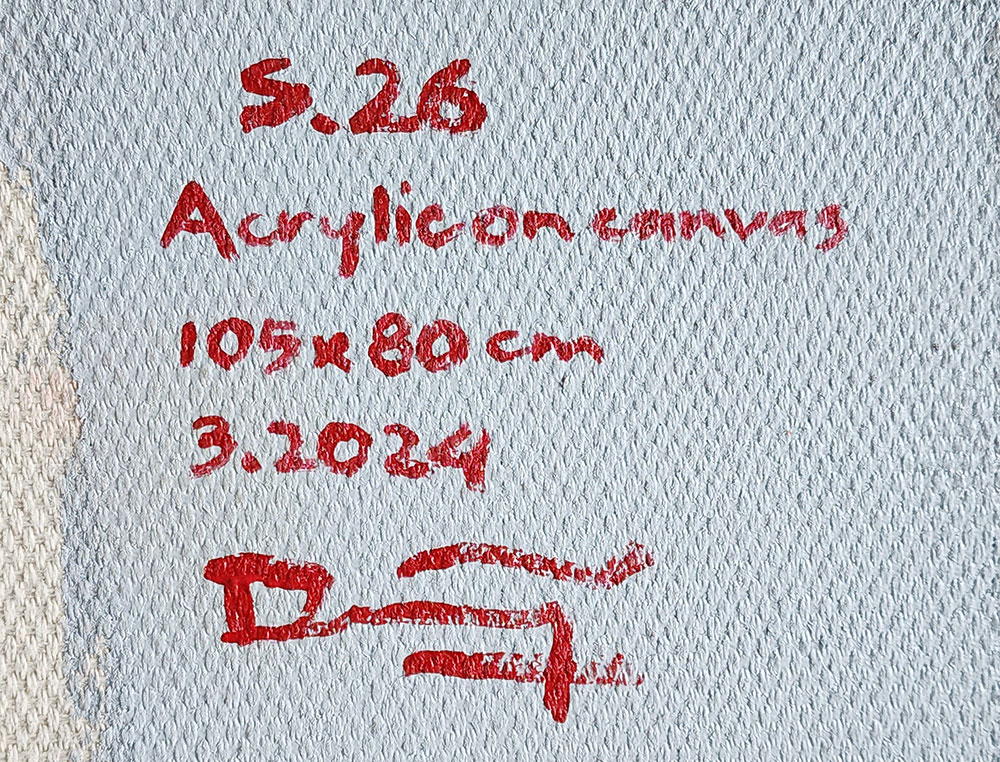 S.26
Acrylic on canvas
105x80 cm
3.2024